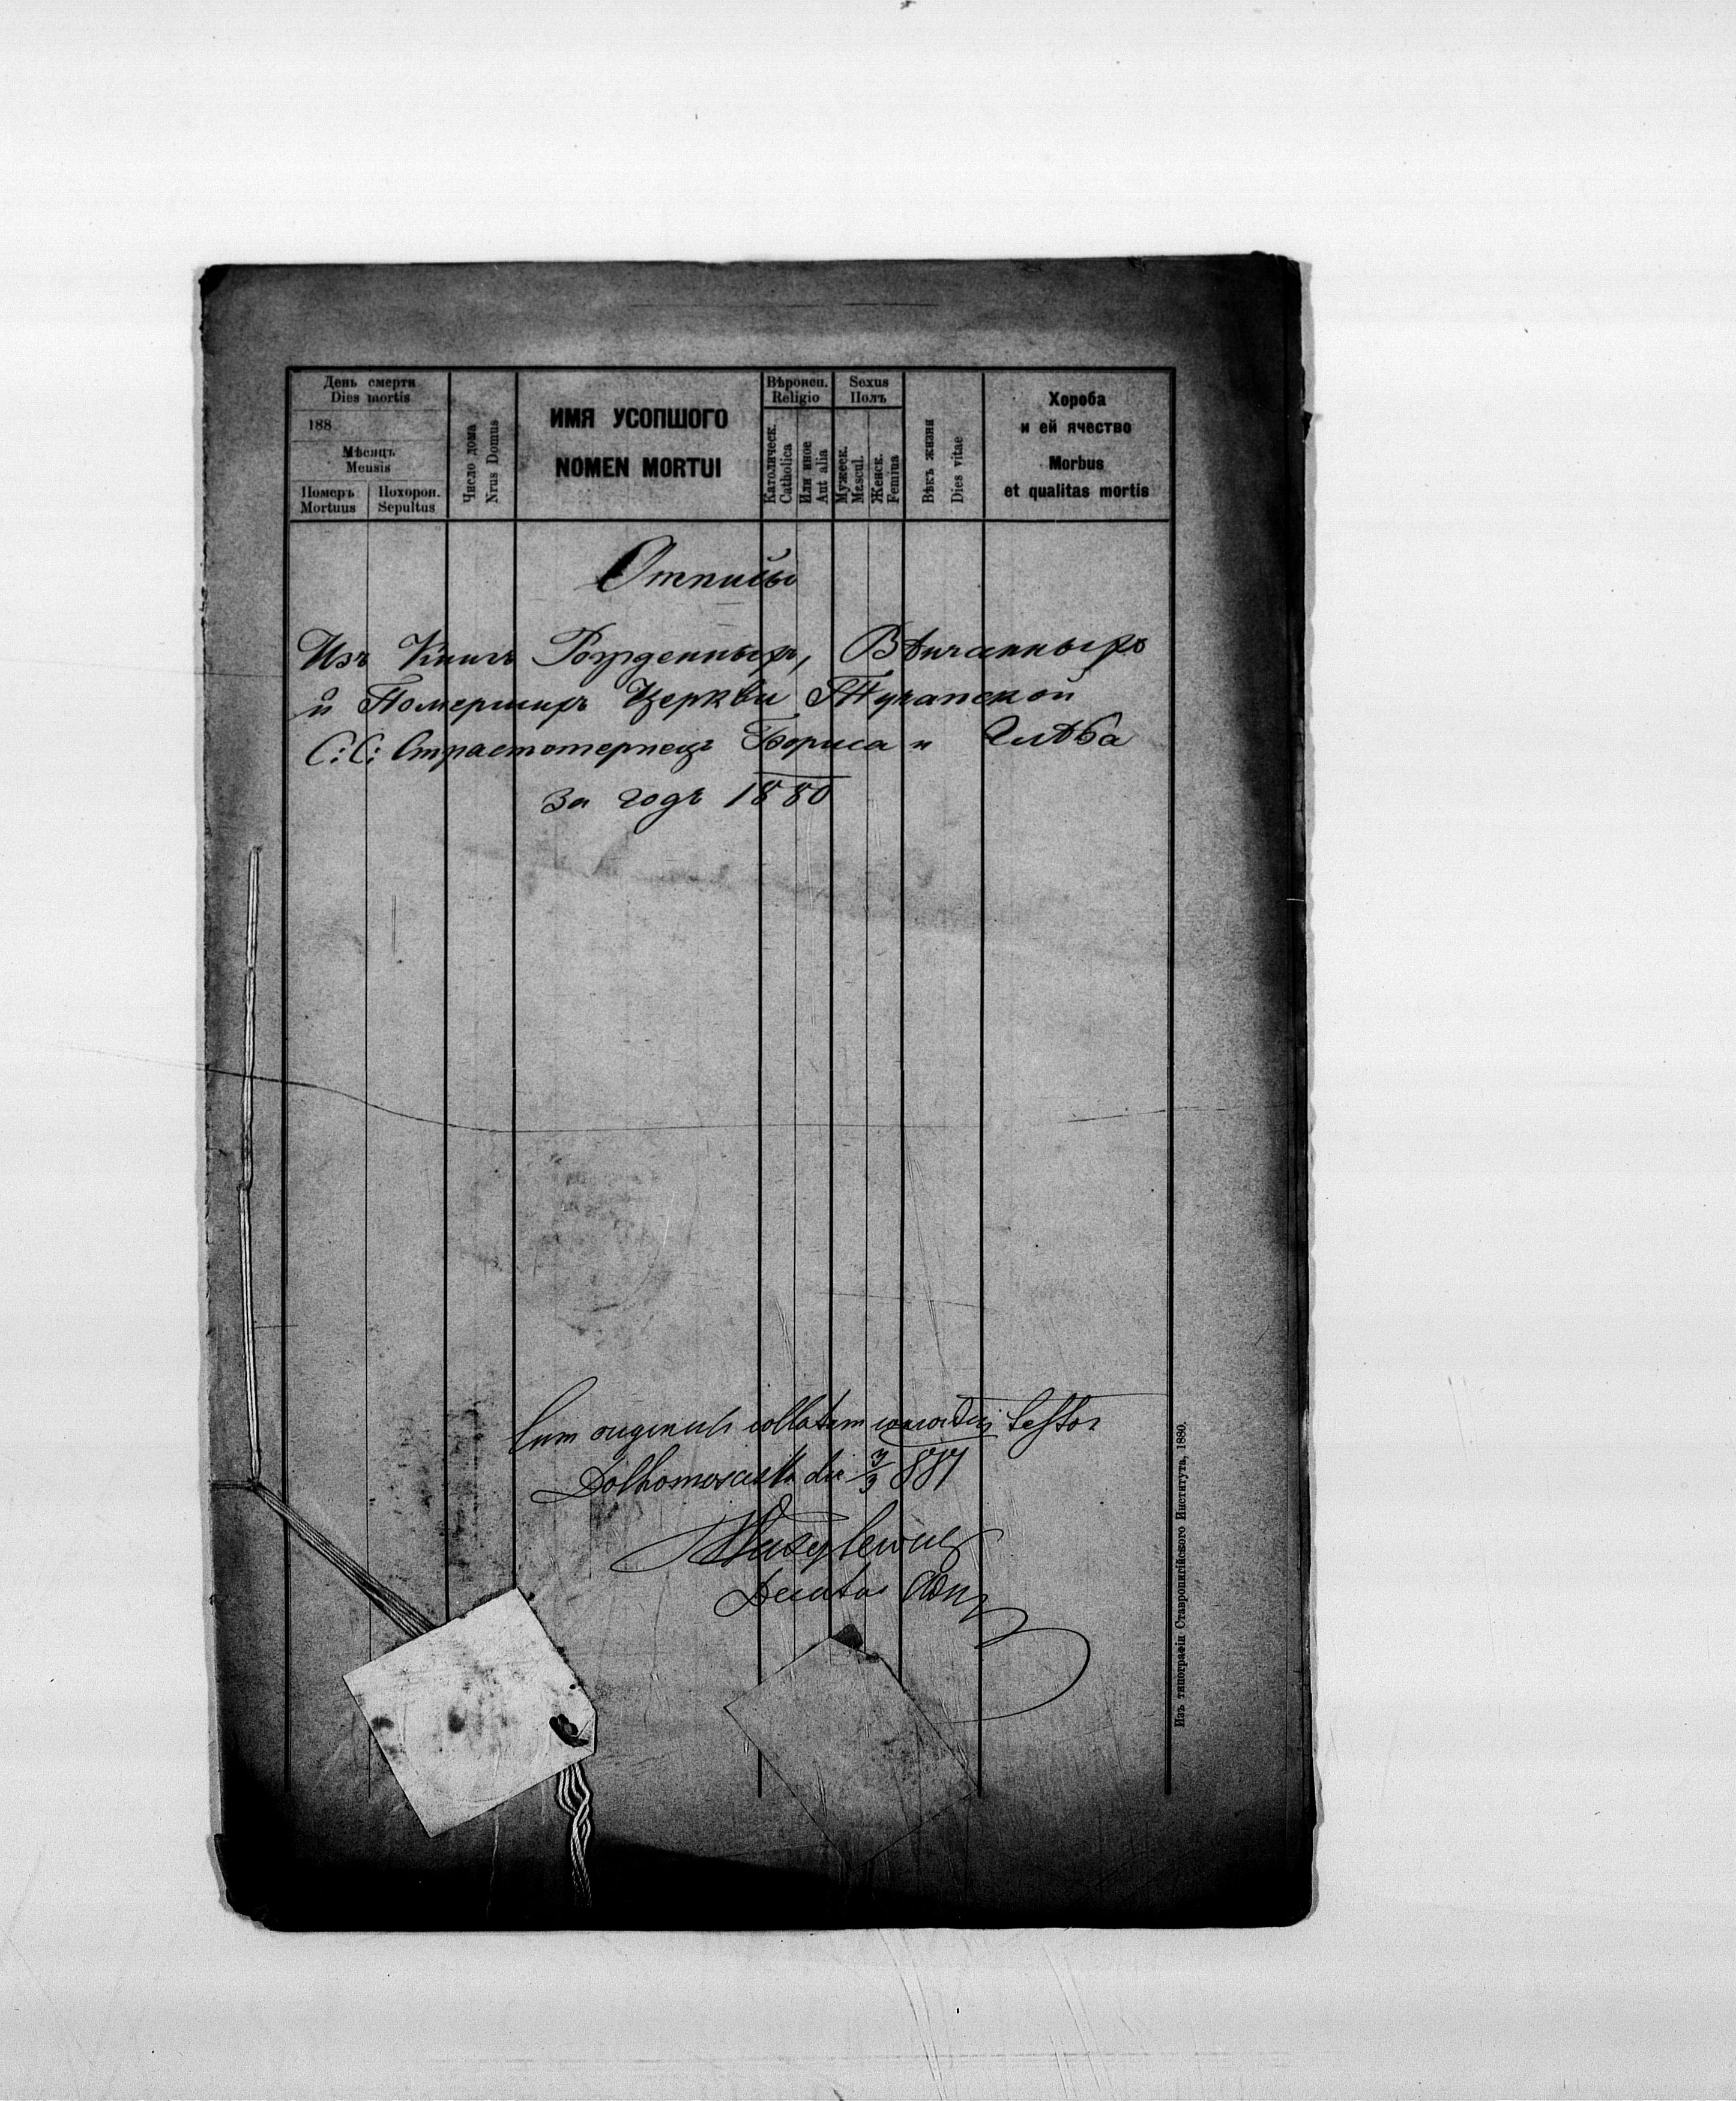 День смерти
Dies mortis
188
Мѣсяцъ
Mensis
Померъ
Mortuus
Похорон.
Sepultus
Число дома
Nrus Domus
ИМЯ УСОПШОГО
NOMEN MORTUI
Вѣроисп.
Religio
Католическ.
Catholica
Или иное
Aut alia
Sexus
Полъ
Мужеск.
Mascul.
Женск.
Femina
Вѣкъ жизни
Dies vitae
Хороба
и ей ячество
Morbus
et qualitas mortis
Отписы
Изъ Книгъ Рожденныхъ, Вѣнчанныхъ
и Помершихъ Церкви Тучапской
С: С: Страстотерпецъ Бориса и Глѣба
За годъ 1880
Cum originali collatum testor
die 3/3 881
Wasylewicz
Изъ типографіи Ставропигійского Института, 1880.